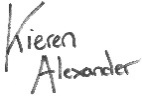 Kieren
Alexander